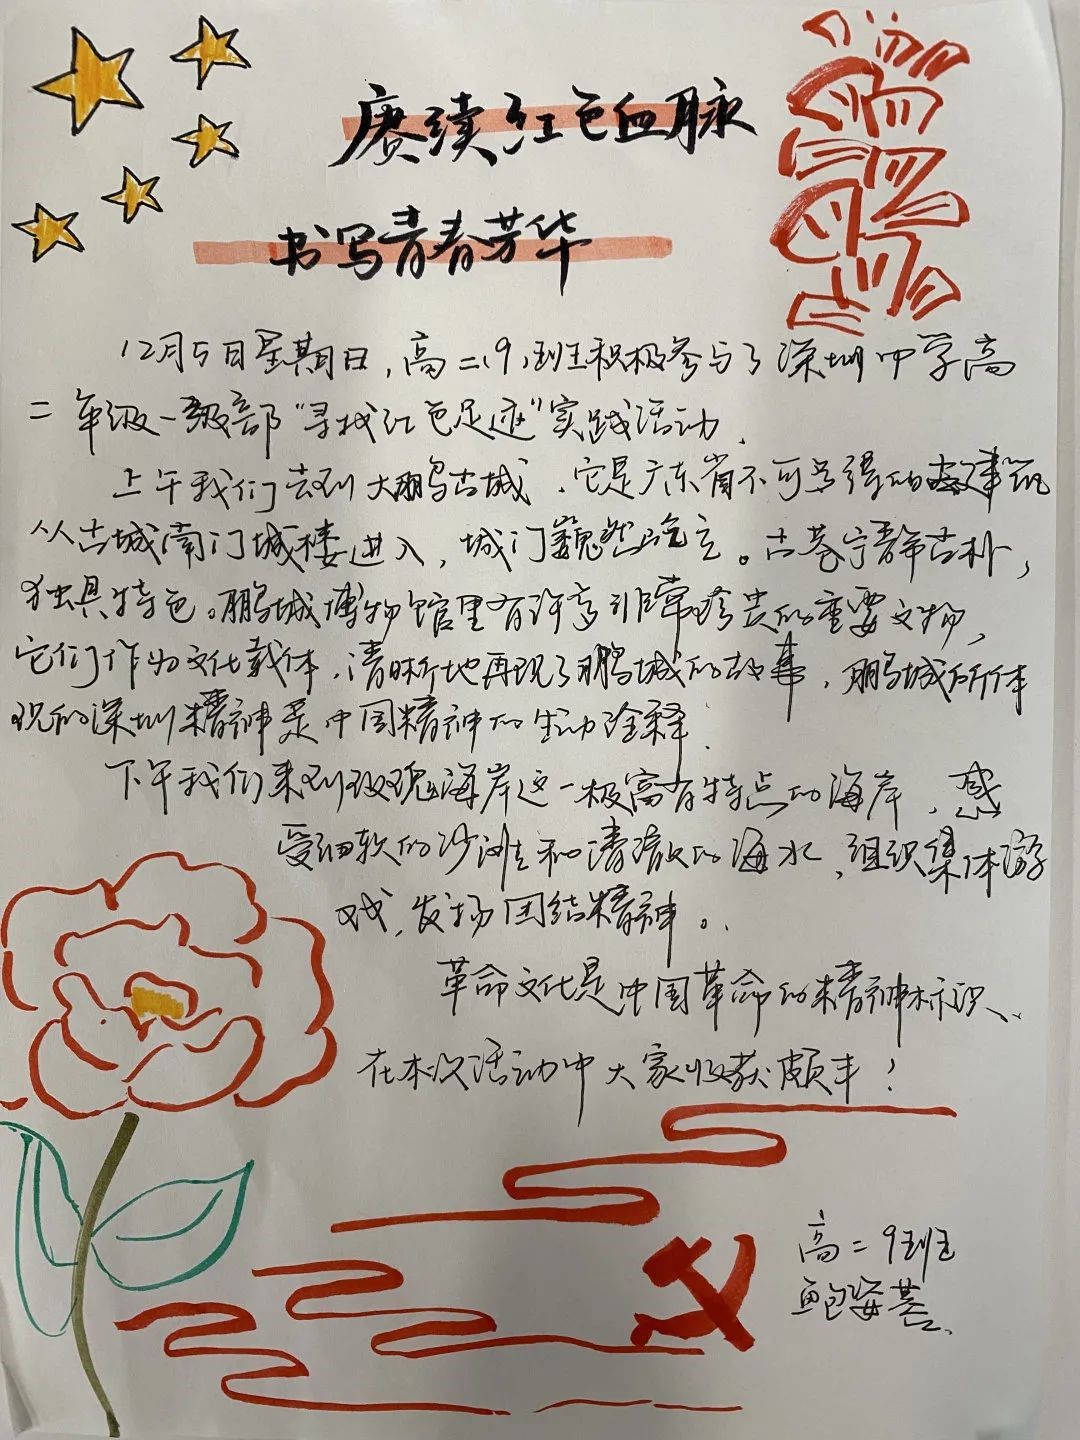 赓续红色血脉
书写青春芳华
12月5日星期日，高二（9）班积极参与了深圳中学高
二年级一级部“寻找红色足迹”实践活动．
上午我们去到大鹏古城．它是广东省不可多得的古建筑
从古城南门城楼进入，城门巍然屹立。古巷宁静古朴，
独具特色。鹏城博物馆里有许多非常珍贵的重要文物，
它们作为文化载体．清晰地再现了鹏城的故事．鹏城所体
现的深圳精神是中国精神的生动诠释．
下午我们来到玫瑰海岸这一极富有特点的海岸．感
受细软的沙滩和清澈的海水．组织集体游
戏，发扬团结精神。
革命文化是中国革命的精神标识、
在本次活动中大家收获颇丰！
高二9班
鲍姿菩